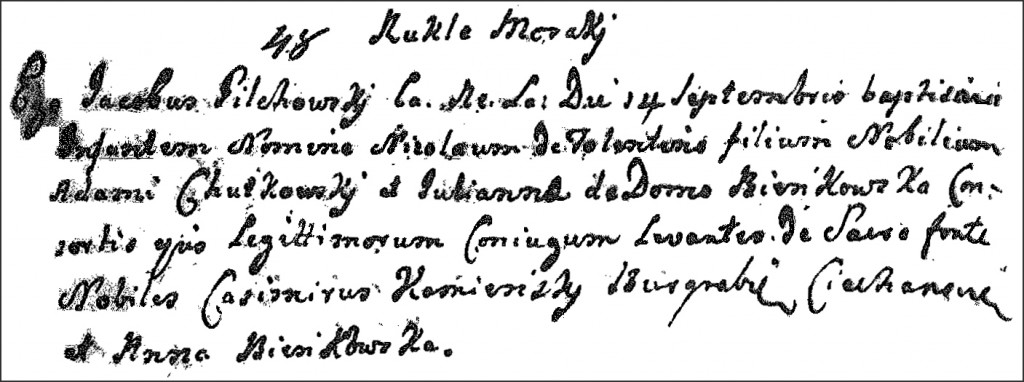 48 Kukle Moraky
Ego Jacobus Pilchowsky Ca. Re. La: Die 14 Septembris baptisavi
Infantem Nomine Nicolaum de Tolentino filium Nobilium
Adami Chutkowsky et Julianna de Domo Bienikowska Con-
sortis ejus Legittimorum Coniugum Levantes de Sacro fonte
Nobiles Casimirus Kamiensky Burgrabie Ciechanens
et Anna Bienikowska.